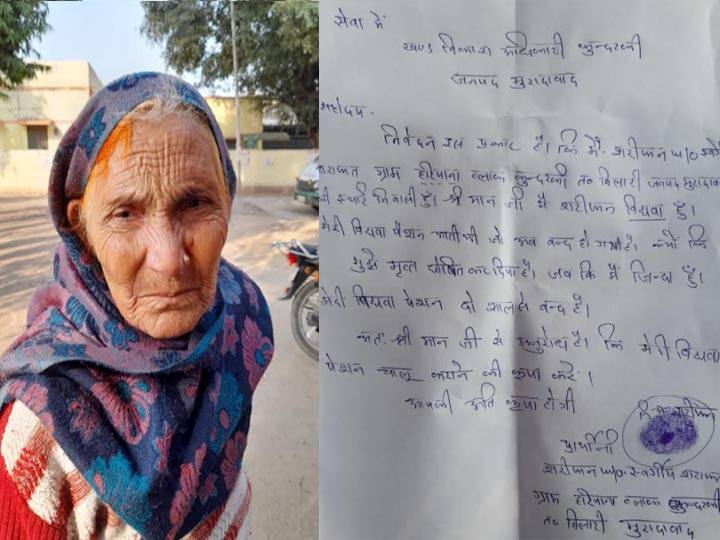 सेवा में
खण्ड विकास अधिकारी कुन्दरकी
जनपद मुरादाबाद
महोदय.
निवेदन इस प्रकार है। कि मैं शरीफन w/o स्व०
शराफत ग्राम हरियाना ब्लाक कुन्दरकी त० बिलारी जनपद मुरादाबाद
की स्थाई निवासी हूँ। श्री मान जी मैं शरीफन विधवा हूँ।
मेरी विधवा पेंशन आती थी जो अब बन्द हो गयी है। क्यों कि
मुझे मृत घोषित कर दिया है। जब कि मैं जिन्दा हूँ।
मेरी विधवा पेशन दो साल से बन्द है।
अतः श्री मान जी से अनुरोध है। कि मेरी विधवा
पेशन चालू कराने की कृपा करें।
आपकी अति कृपा होगी
शरीफन
प्रार्थीनी
शरीफन w/o स्वर्गीय शराफत
ग्राम हरियाना ब्लाक कुन्दरकी
त० बिलारी मुरादाबाद